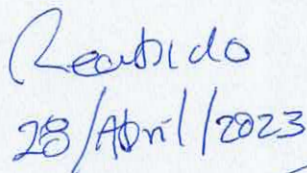 Recibido
28/Abril/2023